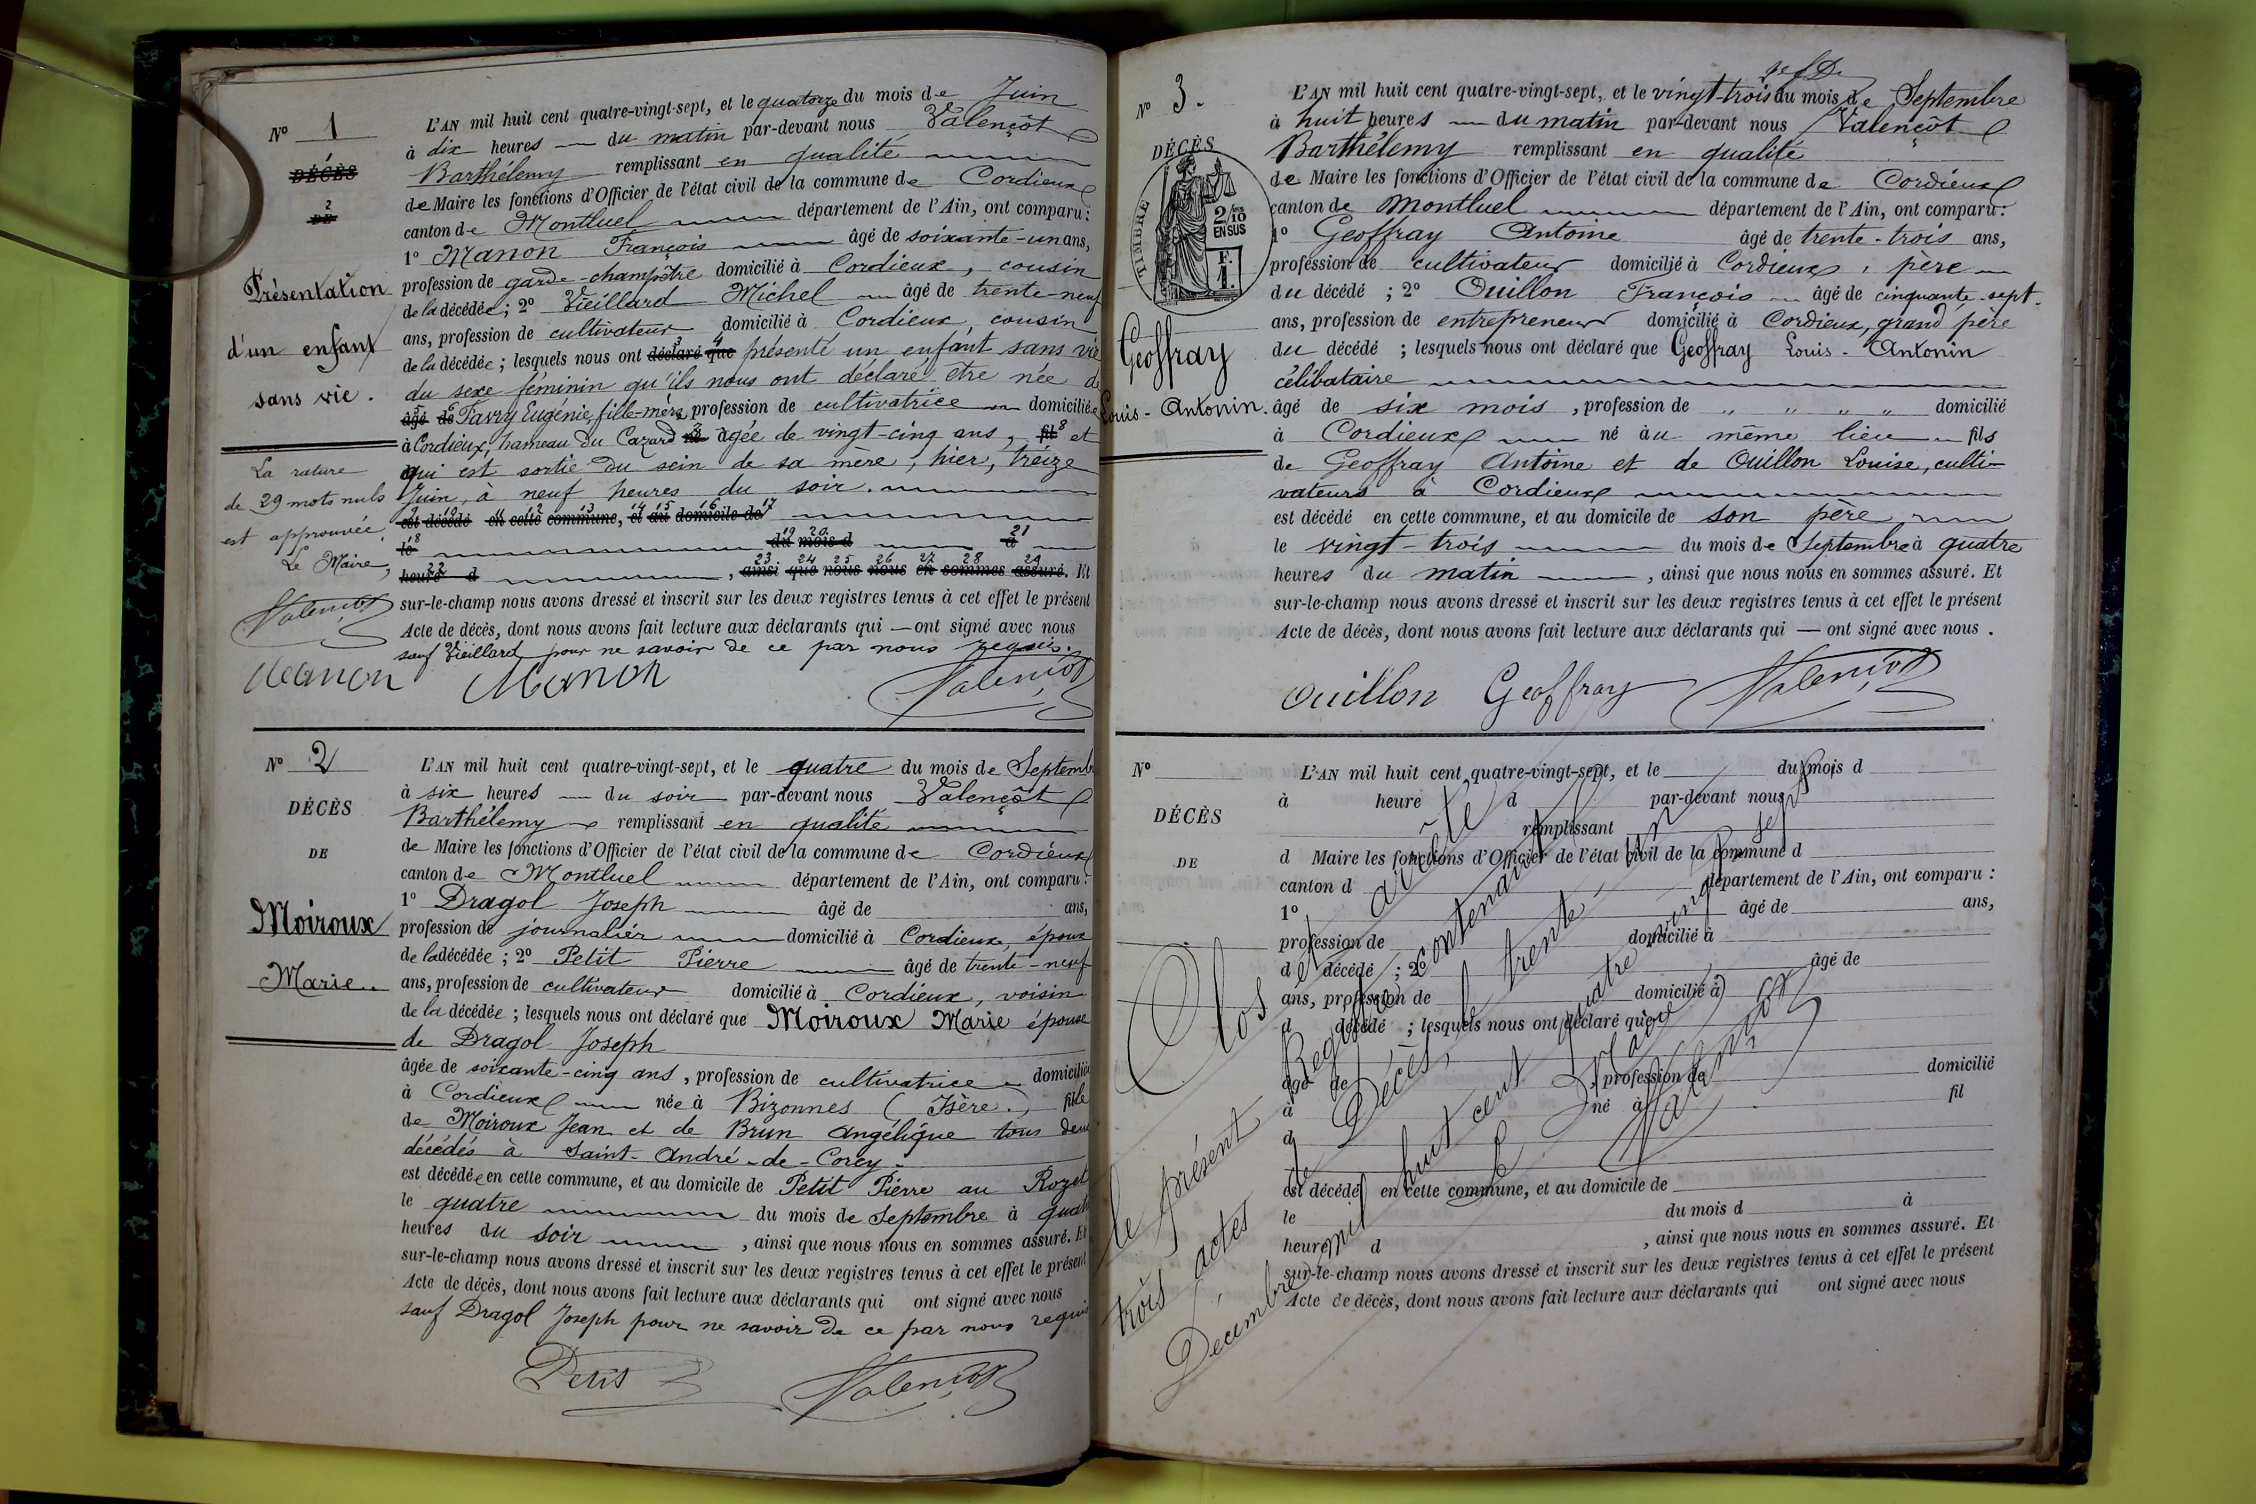 N° 1
DÉCÈS
2
DE
Présentation
d'un enfant
sans vie.
La rature
de 29 mots nuls
est approuvée.
Le Maire,
Valençot
L'AN mil huit cent quatre-vingt-sept, et le quatorze du mois de Juin
à dix heures du matin par-devant nous Valençôt
Barthélemy remplissant en qualité
de Maire les fonctions d'Officier de l'état civil de la commune de Cordieux
canton de Montluel département de l'Ain, ont comparu :
1° Manon François âgé de soixante-un ans,
profession de garde-champêtre domicilié à Cordieux, cousin
de la décédée ; 2° Vieillard Michel âgé de trente-neuf
ans, profession de cultivateur domicilié à Cordieux, cousin
de la décédée ; lesquels nous ont déclaré que présenté un enfant sans vie
du sexe féminin qu'ils nous ont déclaré être née de
âgé de Favry Eugénie, fille-mère, profession de cultivatrice domiciliée
à Cordieux, hameau du Cazard né âgée de vingt-cinq ans, fil et
qui est sortie du sein de sa mère, hier, treize
Juin, à neuf heures du soir.
est décédé en cette commune, et au domicile de
le du mois d à
heure d , ainsi que nous nous en sommes assuré. Et
sur-le-champ nous avons dressé et inscrit sur les deux registres tenus à cet effet le présent
Acte de décès, dont nous avons fait lecture aux déclarants qui — ont signé avec nous
sauf Vieillard pour ne savoir de ce par nous requis.
Manon Manon Valençot
N° 2
DÉCÈS
DE
Moiroux
Marie.
L'AN mil huit cent quatre-vingt-sept, et le quatre du mois de Septemb
à six heures du soir par-devant nous Valençôt
Barthélemy remplissant en qualité
de Maire les fonctions d'Officier de l'état civil de la commune de Cordieux
canton de Montluel département de l'Ain, ont comparu :
1° Dragol Joseph âgé de ans,
profession de journalier domicilié à Cordieux, époux
de la décédée ; 2° Petit Pierre âgé de trente-neuf
ans, profession de cultivateur domicilié à Cordieux, voisin
de la décédée ; lesquels nous ont déclaré que Moiroux Marie épouse
de Dragol Joseph
âgée de soixante-cinq ans, profession de cultivatrice domiciliée
à Cordieux née à Bizonnes (Isère.) fille
de Moiroux Jean et de Brun Angélique tous deux
décédés à Saint-André-de-Corcy.
est décédée en cette commune, et au domicile de Petit Pierre au Rozet
le quatre du mois de Septembre à quatre
heures du soir , ainsi que nous nous en sommes assuré. Et
sur-le-champ nous avons dressé et inscrit sur les deux registres tenus à cet effet le présent
Acte de décès, dont nous avons fait lecture aux déclarants qui ont signé avec nous
sauf Dragol Joseph pour ne savoir de ce par nous requis
Petit Valençot
N° 3.
DÉCÈS
TIMBRE
2/10
EN SUS
F.
1.
Geoffray
Louis-Antonin.
L'AN mil huit cent quatre-vingt-sept, et le vingt-trois du mois de Septembre
à huit heures du matin par-devant nous Valençôt
Barthélemy remplissant en qualité
de Maire les fonctions d'Officier de l'état civil de la commune de Cordieux
canton de Montluel département de l'Ain, ont comparu :
1° Geoffray Antoine âgé de trente-trois ans,
profession de cultivateur domicilié à Cordieux, père
du décédé ; 2° Ouillon François âgé de cinquante-sept
ans, profession de entrepreneur domicilié à Cordieux, grand père
du décédé ; lesquels nous ont déclaré que Geoffray Louis-Antonin
célibataire
âgé de six mois, profession de " " " " domicilié
à Cordieux né au même lieu fils
de Geoffray Antoine et de Ouillon Louise, culti-
vateurs à Cordieux
est décédé en cette commune, et au domicile de son père
le vingt-trois du mois de Septembre à quatre
heures du matin , ainsi que nous nous en sommes assuré. Et
sur-le-champ nous avons dressé et inscrit sur les deux registres tenus à cet effet le présent
Acte de décès, dont nous avons fait lecture aux déclarants qui — ont signé avec nous .
Ouillon Geoffray Valençot
N°
DÉCÈS
DE
L'AN mil huit cent quatre-vingt-sept, et le du mois d
à heure d par-devant nous
remplissant
d Maire les fonctions d'Officier de l'état civil de la commune d
canton d département de l'Ain, ont comparu :
1° âgé de ans,
profession de domicilié à
d décédé ; 2° âgé de
ans, profession de domicilié à
d décédé ; lesquels nous ont déclaré que
âgé de , profession de domicilié
à né à fil
d
est décédé en cette commune, et au domicile de
le du mois d à
heure d , ainsi que nous nous en sommes assuré. Et
sur-le-champ nous avons dressé et inscrit sur les deux registres tenus à cet effet le présent
Acte de décès, dont nous avons fait lecture aux déclarants qui ont signé avec nous
Clos et arrêté
le présent Registre, contenant
trois actes de Décès, le trente-un
Décembre mil huit cent quatre vingt sept
Le Maire
Valençot